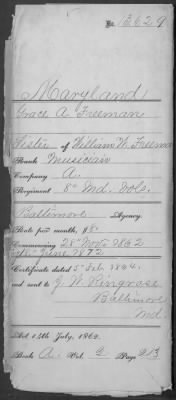 No. 13,629
Maryland
Grace A. Freeman
Sister of William W. Freeman
Rank Musician
Company A.
Regiment 8" Md. Vols.
Baltimore Agency.
Rate per month, $8.
Commencing 28" Nov. 1862
June 1872
Certificate dated 5" Feb. 1864.
and sent to J. W. Ringrose
Baltimore
Md.
Act 14th July, 1862.
Book A Vol. G Page 213